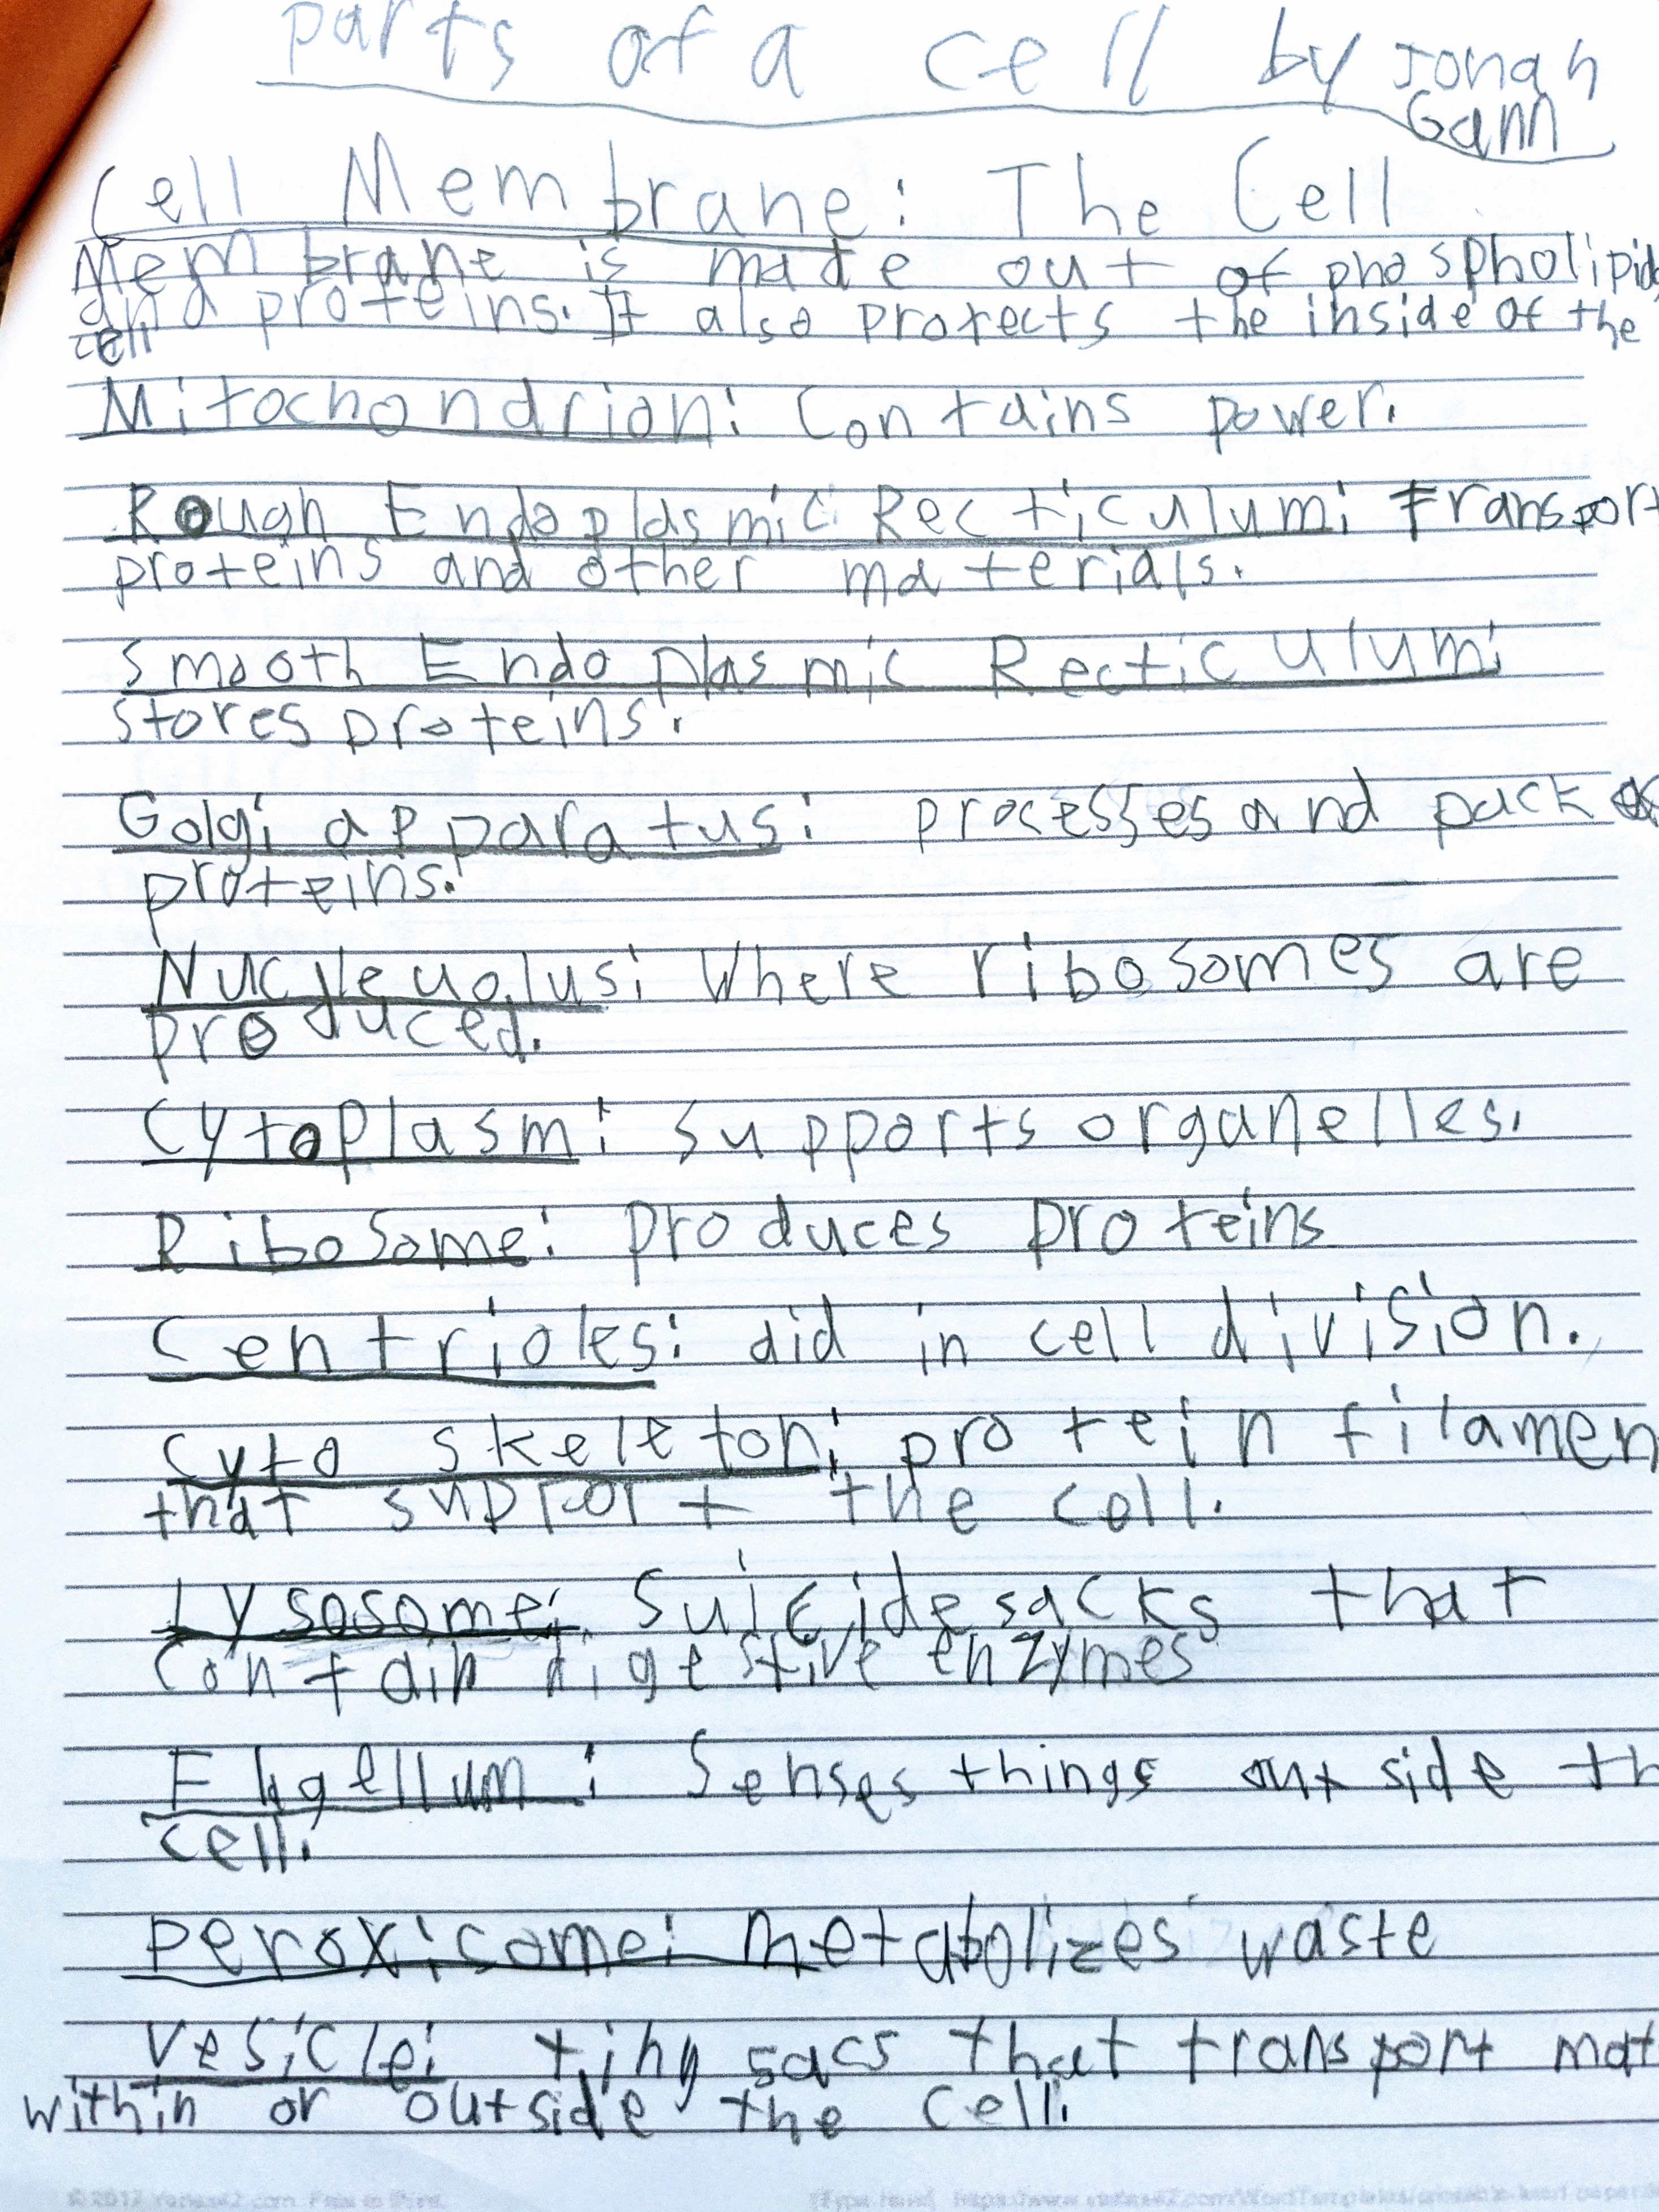 parts of a cell by Jonah
Gann
Cell Membrane: The Cell
Membrane is made out of phospholipids
and proteins. It also protects the inside of the
cell
Mitochondrion: Contains power.
Rough Endoplasmic Recticulum: Transport
proteins and other materials.
Smooth Endoplasmic Recticulum:
stores proteins.
Golgi apparatus: processes and pack
proteins.
Nucleuolus: Where ribosomes are
produced.
Cytoplasm: supports organelles.
Ribosome: produces proteins
Centrioles: aid in cell division.
Cyto skeleton: protein filamen
that support the cell.
Lysosome: Suicide sacks that
contain digestive enzymes
Flagellum: Senses things outside th
cell.
Peroxisome: metabolizes waste
Vesicle: tiny sacs that transport mat
within or outside the cell.
© 2017 Vertex42.com. Free to Print.